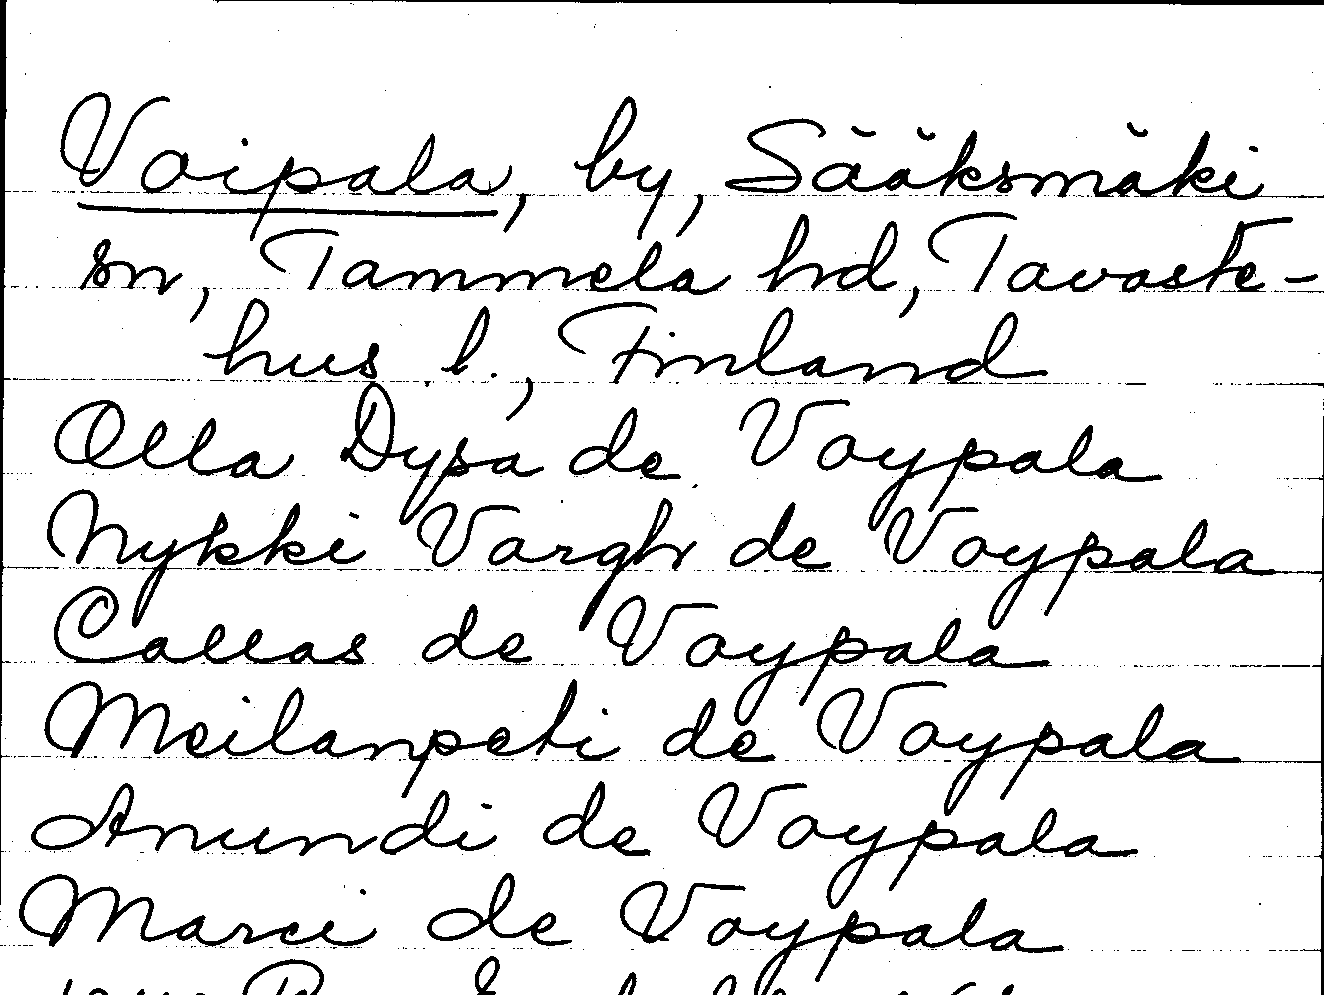 Voipala, by, Sääksmäki
sn, Tammela hd, Tavaste-
hus l., Finland
Olla Dysa de Voypala
Nykki Vargh de Voypala
Callas de Voypala
Meilanpeti de Voypala
Anundi de Voypala
Marci de Voypala